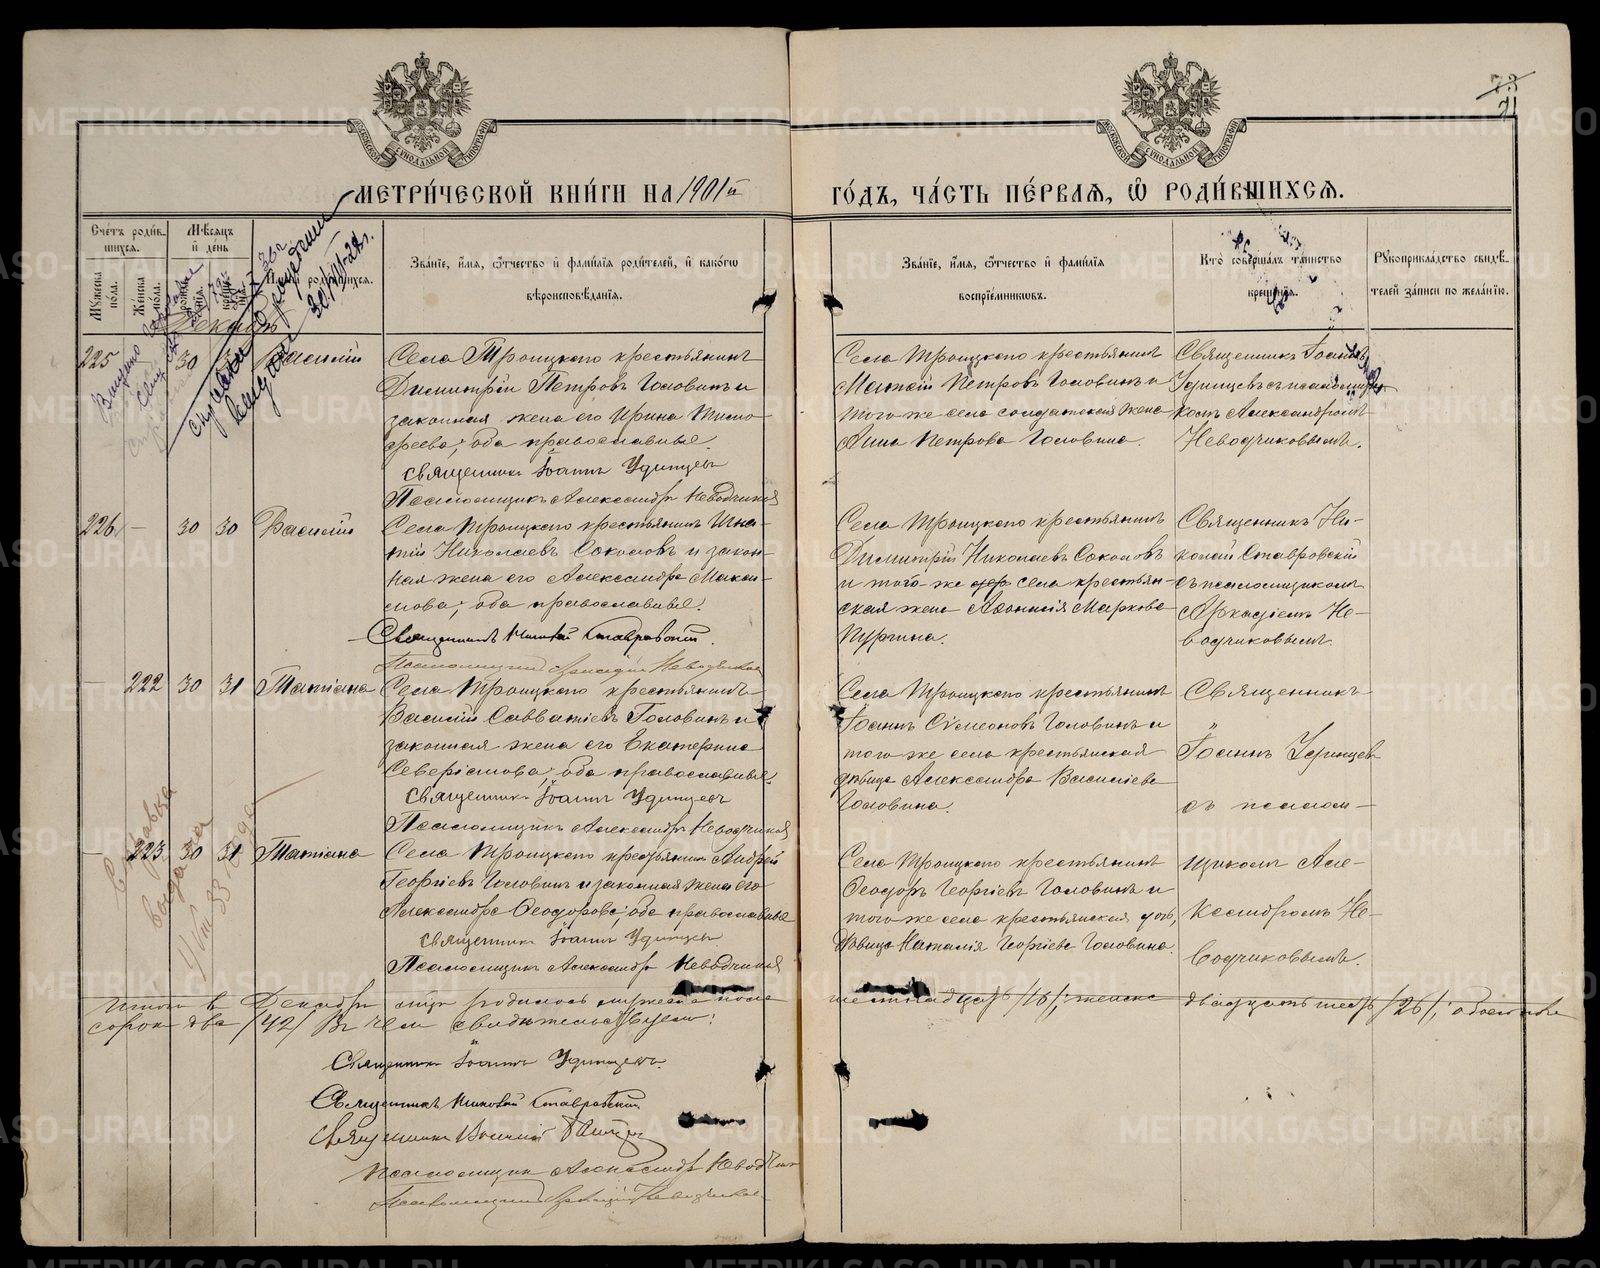 МЕТРИ́ЧЕСКОЙ КНИ́ГИ НА 1901й
ГО́ДЪ, ЧА́СТЬ ПЕ́РВАЯ, Ѡ҆ РОДИ́ВШИХСЯ.
73
21
Сче́тъ роди́вшихся.
Му́жеска по́ла.
Же́нска по́ла.
Мѣ́сяцъ и҆ де́нь
Зва́нїе, и҆́мя, ѻ҆́тчество и҆ фами́лїя роди́телей, и҆ како́гѡ
вѣроисповѣ́данїя.
Зва́нїе, и҆́мя, ѻ҆́тчество и҆ фами́лїя
воспрїе́мниковъ.
Кто̀ соверша́лъ та́инство
креще́нїя.
Рꙋкоприкла́дство свидѣ́-
телей за́писи по жела́нїю.
Декабрь
225
30
Василій
Села Троицкаго крестьянинъ
Димитрій Петровъ Головинъ и
законная жена его Ирина Тимо-
феева; оба православные.
Священникъ Іоаннъ Удинцевъ
Псаломщикъ Александръ Неводчиковъ
Села Троицкаго крестьянинъ
Матѳій Петровъ Головинъ и
того же села солдатская жена
Анна Петрова Головина.
Священникъ Іоаннъ
Удинцевъ съ псаломщи-
комъ Александромъ
Неводчиковымъ.
226 — 30 30 Василій
Села Троицкаго крестьянинъ Игна-
тій Николаевъ Соколовъ и закон-
ная жена его Александра Макси-
мова; оба православные.
Священникъ Николай Ставровскій.
Псаломщикъ Аркадій Неводчиковъ
Села Троицкаго крестьянинъ
Димитрій Николаевъ Соколовъ
и того же села крестьян-
ская жена Аѳонасія Маркова
Пургина.
Священникъ Ни-
колай Ставровскій
съ псаломщикомъ
Аркадіемъ Не-
водчиковымъ.
— 222 30 31 Татіана
Села Троицкаго крестьянинъ
Василій Савватіевъ Головинъ и
законная жена его Екатерина
Северіанова; оба православные.
Священникъ Іоаннъ Удинцевъ
Псаломщикъ Александръ Неводчиковъ
Села Троицкаго крестьянинъ
Іоаннъ Сѵмеоновъ Головинъ и
того же села крестьянская
дѣвица Александра Василіева
Головина.
Священникъ
Іоаннъ Удинцевъ
съ псалом-
— 223 30 31 Татіана
Села Троицкаго крестьянинъ Андрей
Георгіевъ Головинъ и законная жена его
Александра Ѳеодорова; оба православные
Священникъ Іоаннъ Удинцевъ
Псаломщикъ Александръ Неводчиковъ
Села Троицкаго крестьянинъ
Ѳеодоръ Георгіевъ Головинъ и
того же села крестьянская дочь,
дѣвица Наталія Георгіева Головина.
щикомъ Але-
ксандромъ Не-
водчиковымъ.
Справка
выдана
Итого въ Декабрѣ м-цѣ родилось мужеска пола шестнадцать /16/; женска двадцать шесть /26/; обоего пола
сорокъ два /42/ Въ чемъ свидѣтельствуемъ:
Священникъ Іоаннъ Удинцевъ.
Священникъ Николай Ставровскій
Священникъ
Псаломщикъ Александръ Неводчиковъ
Псаломщикъ Аркадій Неводчиковъ
METRIKI.GASO-URAL.RU